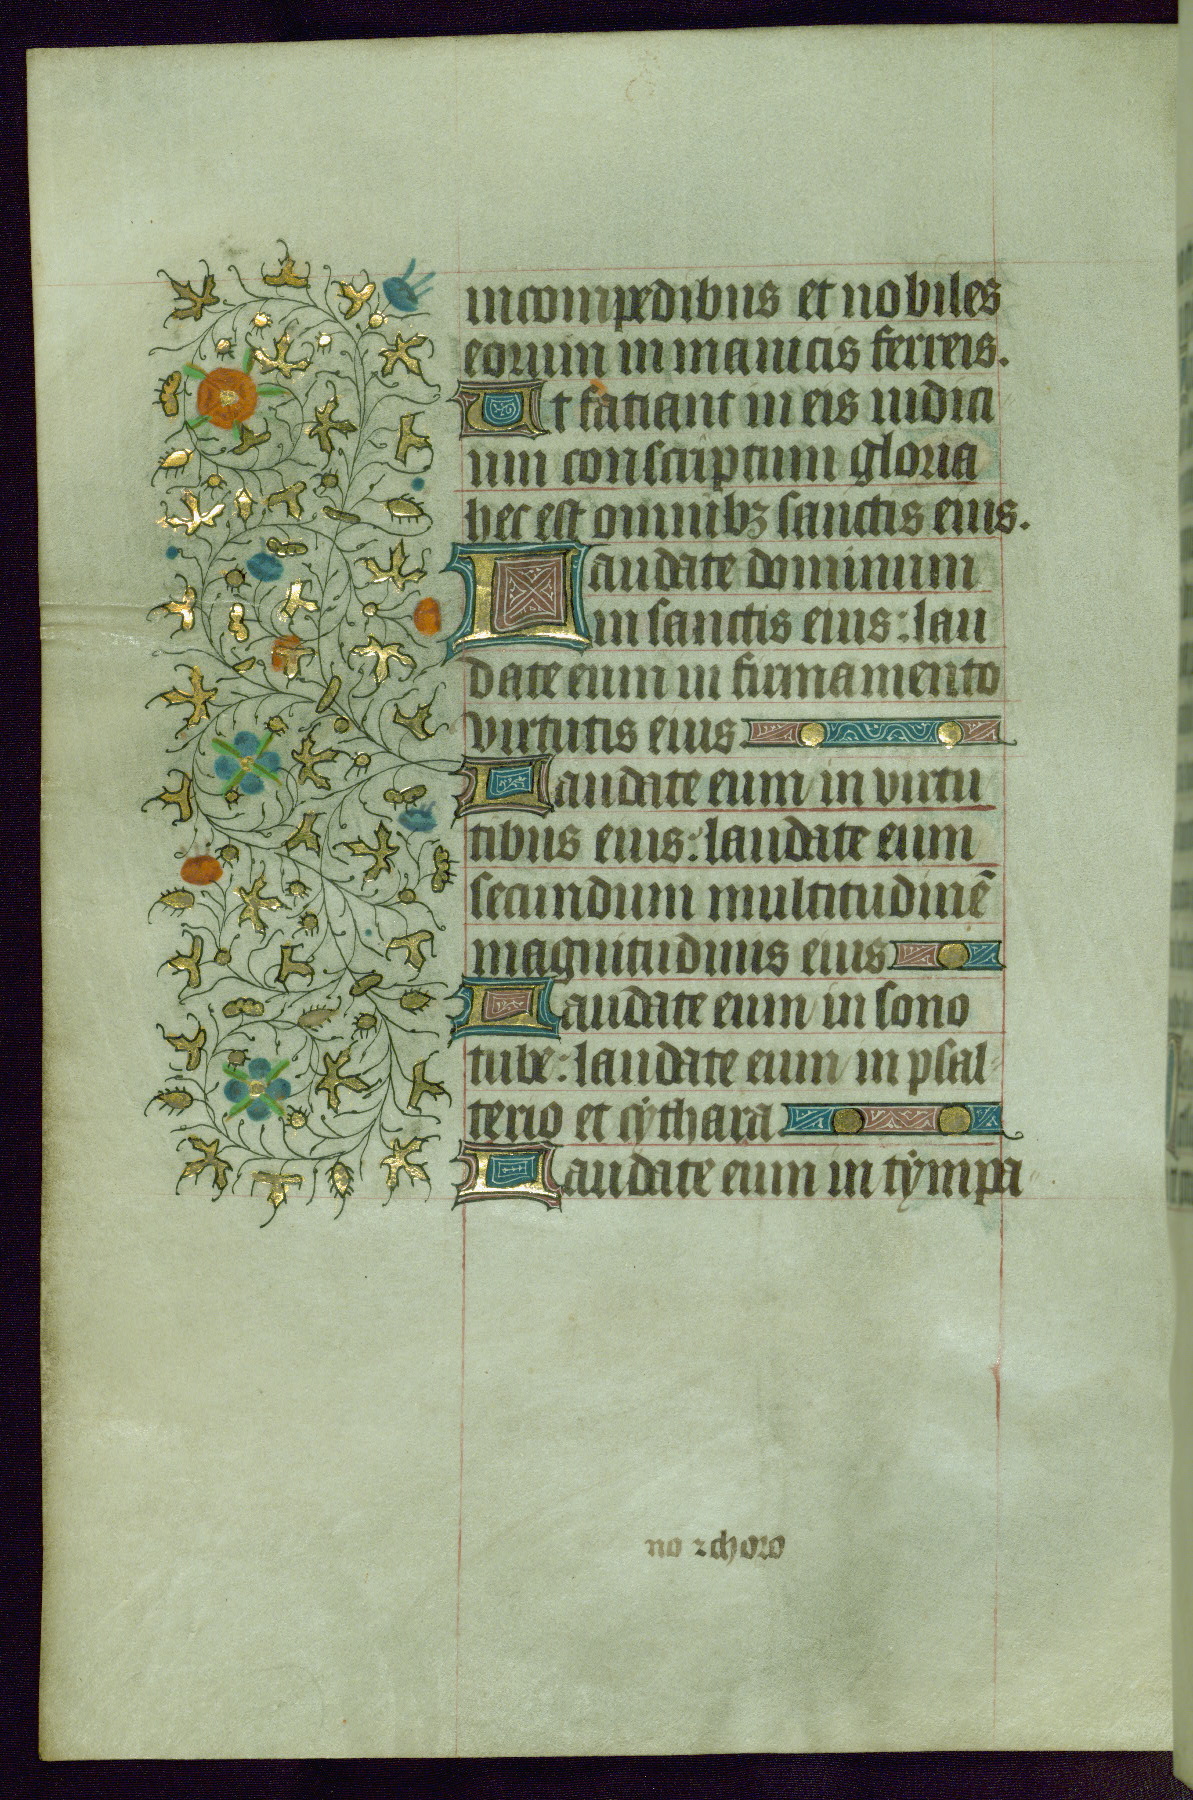 in compedibus et nobiles
eorum in manicis ferreis.
Ut faciant in eis iudici
um conscriptum gloria
hec est omnibꝫ sanctis eius.
Laudate dominum
in sanctis eius: lau
date eum in firmamento
virtutis eius
Laudate eum in virtu
tibus eius: laudate eum
secundum multitudinē
magnitudinis eius
Laudate eum in sono
tube: laudate eum in psal-
terio et cẏthara
Laudate eum in tẏmpa-
no ⁊ choro